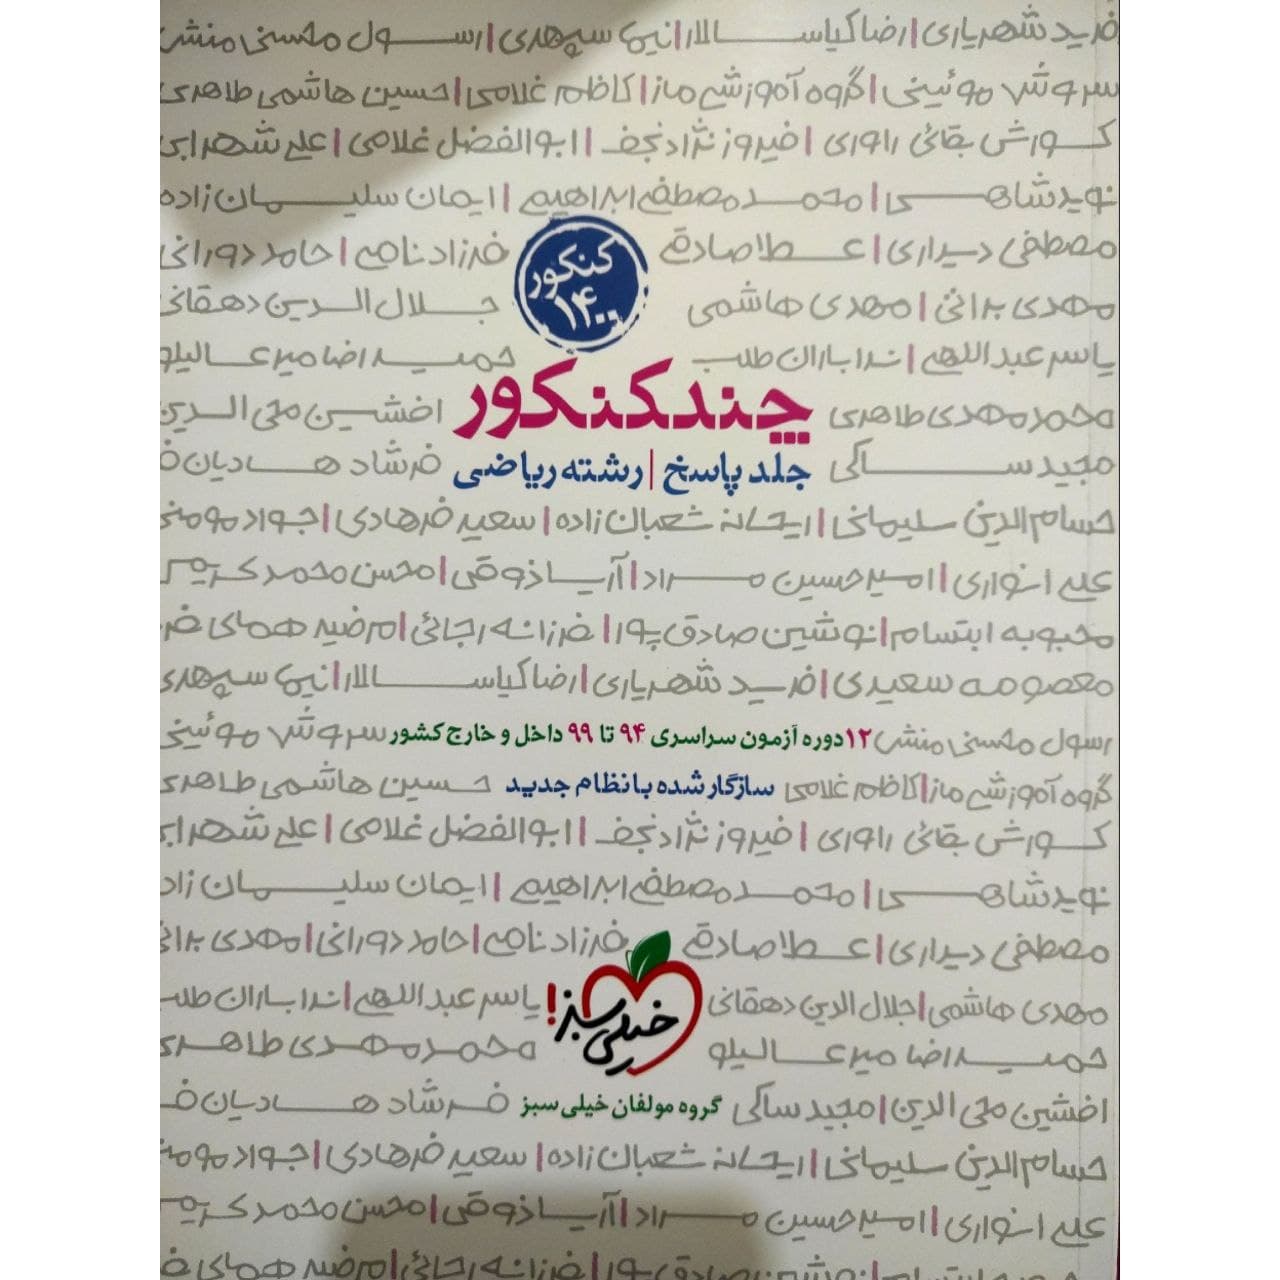 فرید شهریاری | رضا کیاسالار | نیما سپهری | رسول محسنی منش
سروش موئینی | گروه آموزشی ماز | کاظم غلامی | حسین هاشمی طاهری
کورش بقائی راوری | فیروز نژادنجف | ابوالفضل غلامی | علی شهرابی
نوید شاهی | محمد مصطفی ابراهیم | ایمان سلیمان زاده
مصطفی دیداری | عطا صادقی فرزاد نامی | حامد دورانی
مهدی براتی | مهدی هاشمی جلال الدین دهقانی
یاسر عبداللهی | ندا باران طلب حمیدرضا میرعالیلو
محمدمهدی طاهری افشین محی الدین
مجید ساکی فرشاد هادیان ف
کنکور
۱۴۰۰
چند کنکور
جلد پاسخ | رشته ریاضی
حسام الدین سلیمانی | ریحانه شعبان زاده | سعید فرهادی | جواد مومنی
علی انواری | امیرحسین مراد | آریا ذوقی | محسن محمدکریمی
محبوبه ابتسام | نوشین صادق پور | فرزانه رجائی | مرضیه همای فر
معصومه سعیدی | فرید شهریاری | رضا کیاسالار | نیما سپهری
رسول محسنی منش ۱۲ دوره آزمون سراسری ۹۴ تا ۹۹ داخل و خارج کشور سروش موئینی
گروه آموزشی ماز | کاظم غلامی سازگار شده با نظام جدید حسین هاشمی طاهری
کورش بقائی راوری | فیروز نژادنجف | ابوالفضل غلامی | علی شهرابی
نوید شاهی | محمد مصطفی ابراهیم | ایمان سلیمان زاد
مصطفی دیداری | عطا صادقی فرزاد نامی | حامد دورانی | مهدی براتی
مهدی هاشمی | جلال الدین دهقانی یاسر عبداللهی | ندا باران طلب
حمیدرضا میرعالیلو محمدمهدی طاهری
خیلی سبز!
افشین محی الدین | مجید ساکی گروه مولفان خیلی سبز فرشاد هادیان ف
حسام الدین سلیمانی | ریحانه شعبان زاده | سعید فرهادی | جواد مومنی
علی انواری | امیرحسین مراد | آریا ذوقی | محسن محمدکریمی
محبوبه ابتسام | نوشین صادق پور | فرزانه رجائی | مرضیه همای ف